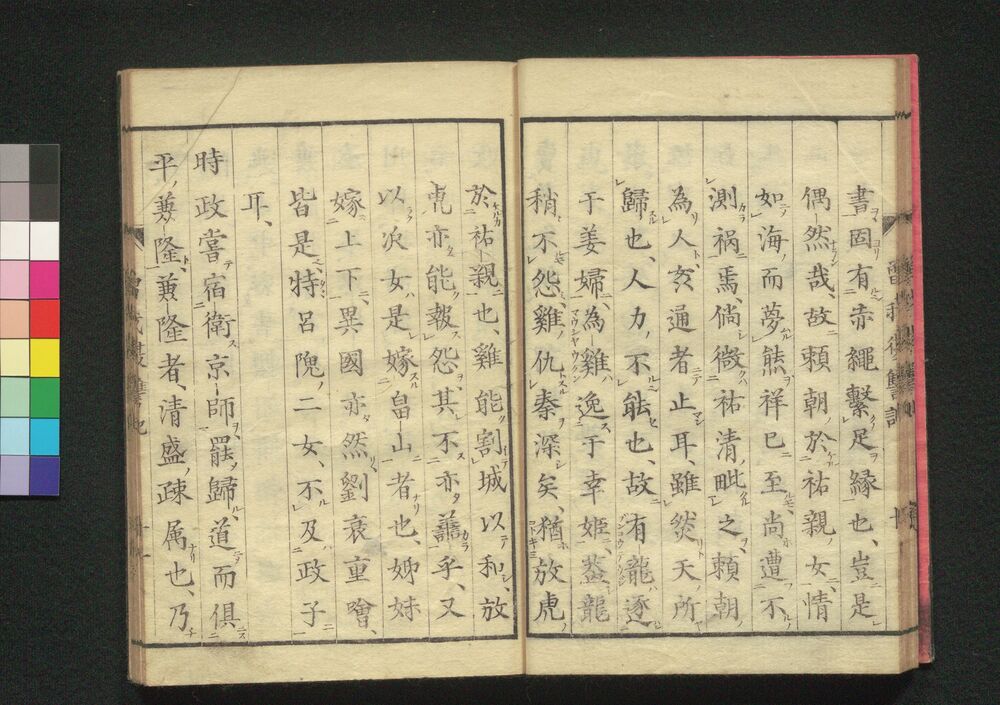 書固有赤繩繫足縁也、豈是
偶然哉、故頼朝、於祐親女、情
如海、而夢熊祥已至、尚遭不
測禍焉、倘微祐清、毗之、頼朝
為人亥通者止耳、雖然天所
歸也、人力不能也、故有龍逐
于姜婦、為雞逸于幸姫、蓋龍
稍不怨雞、仇秦深矣、猶放虎
於祐親也、雞能割城以和、放
虎亦能報怨、其不亦譱乎、又
以次女是嫁畠山者也、姉妹
嫁上下異、國亦然、劉衰重噲、
皆是特呂隗二女、不及政子
耳、
時政嘗宿衛京師、罷歸、道而俱
平兼隆、兼隆者、清盛疎属也、乃
曽我復讐記